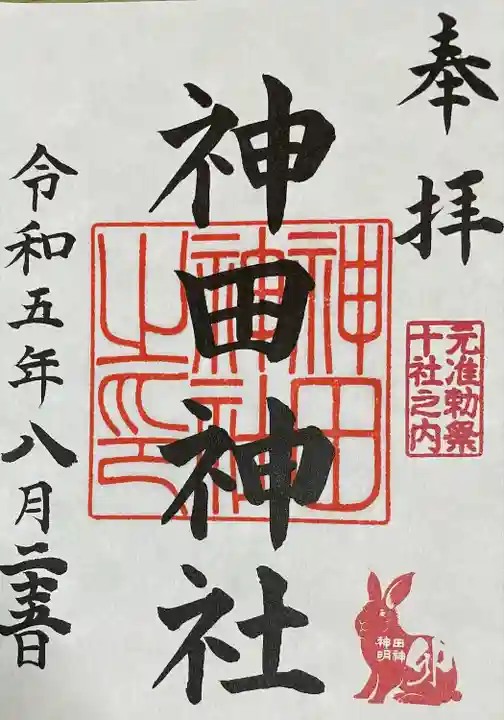 奉拝
元准勅祭
十社之内
神田神社
神田
神社
之印
田神
神明
卯
令和五年八月二十五日